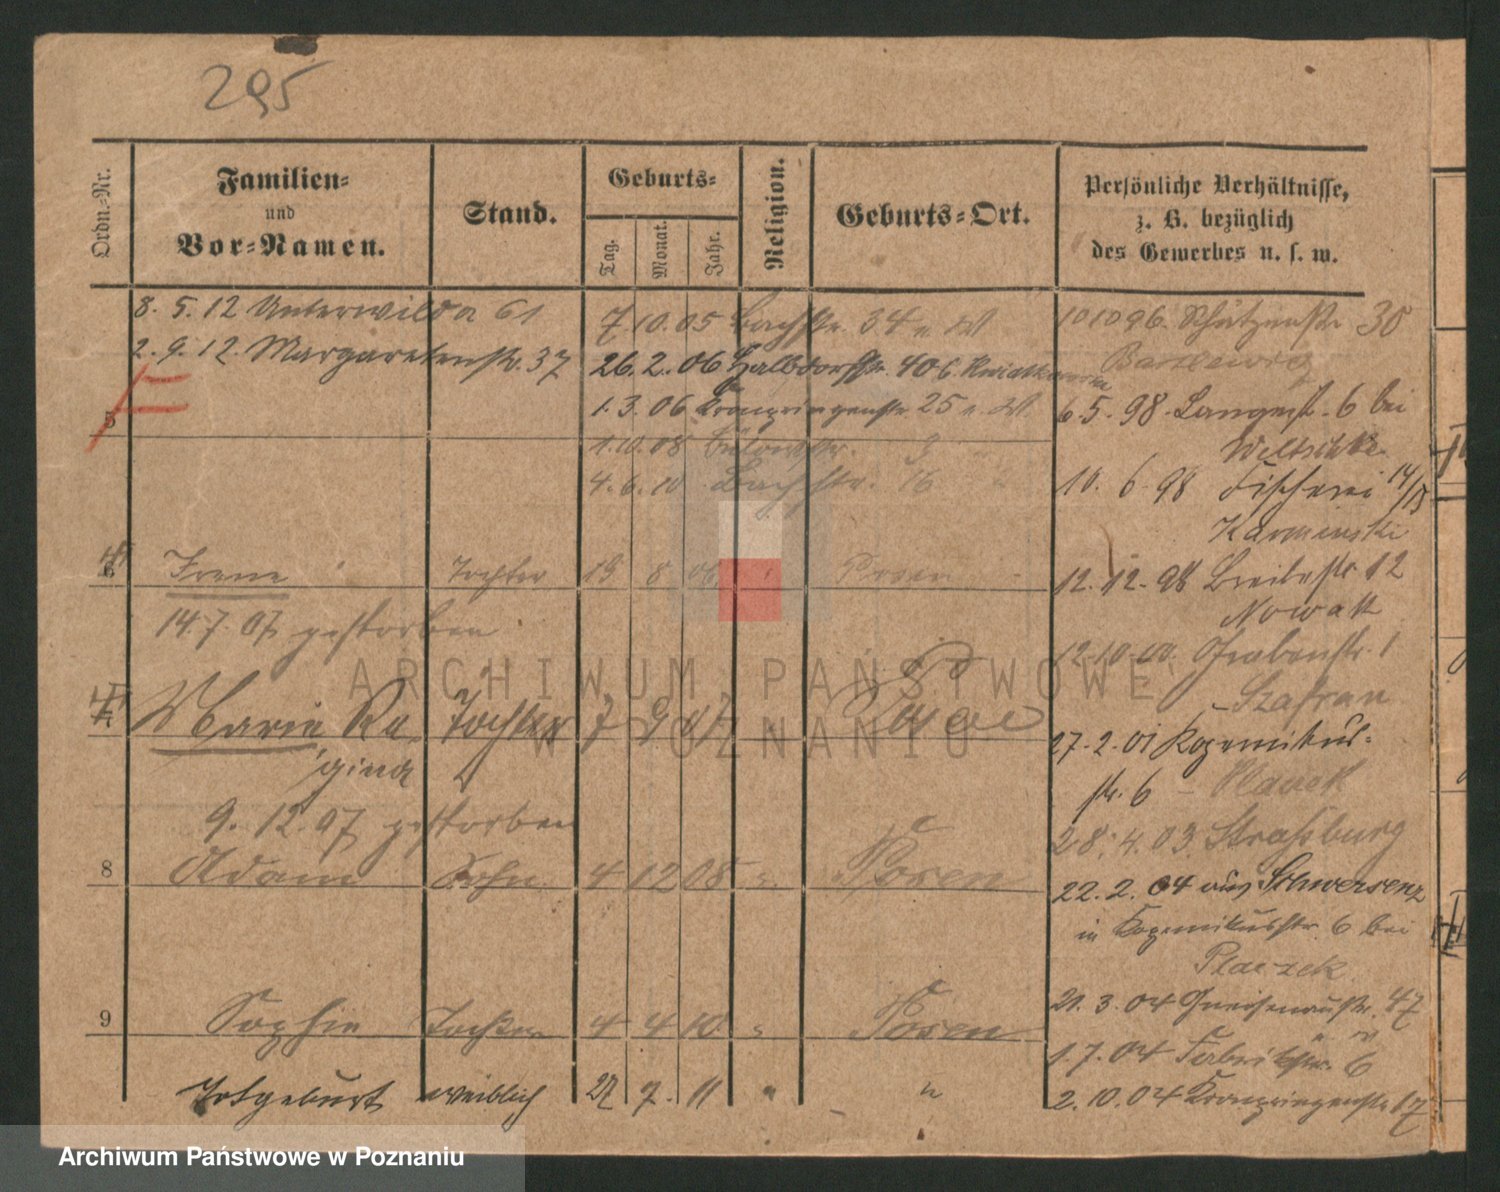 295
Ordn.-Nr.
Familien-
und
Vor-Namen.
Stand.
Geburts-
Tag.
Monat.
Jahr.
Religion.
Geburts-Ort.
Persönliche Verhältnisse,
z. B. bezüglich
des Gewerbes u. s. w.
8. 5. 12 Unterwilda 61
2. 9. 12. Margaretenstr. 37
7. 10. 05 Bachstr. 34
26. 2. 06 Halbdorfstr. 40
1. 3. 06 Kronprinzenstr. 25
1. 10. 08 Bülowstr. 9
4. 6. 10 Bachstr. 16
Irene Tochter 19 8 06 Posen
14. 7. 07 gestorben
Marie Re Tochter 7 9 07 Posen
gina
9. 12. 07 gestorben
8 Adam Sohn 4 12 08 Posen
9 Sophie Tochter 4 4 10 " Posen
Totgeburt weiblich 27 7. 11 " "
10 10 96. Schützenstr 30
6. 5. 98. Langestr. 6 bei
10. 6. 98 Fischerei 14/15
Karminski
12. 12. 98 Breitestr. 12
Nowak
12. 10. 00 Grabenstr. 1
Szafran
27. 2. 01 Kopernikus-
str. 6
28. 4. 03 Straßburg
22. 2. 04 aus Schwersenz
in Kopernikusstr. 6 bei
Placzek
21. 3. 04 Gneisenaustr. 47
1. 7. 04 Fabrikstr. 6
2. 10. 04 Kronprinzenstr 17
ARCHIWUM PAŃSTWOWE
W POZNANIU
Archiwum Państwowe w Poznaniu